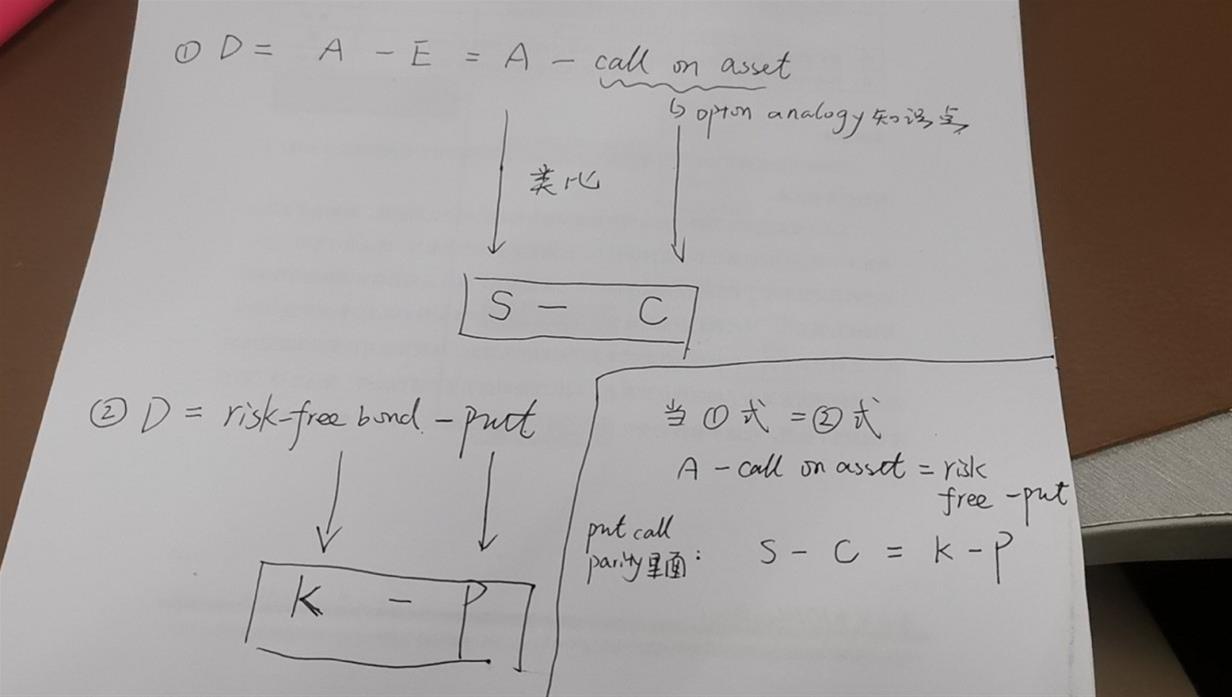 ① D = A - E = A - call on asset
↳ option analogy 知识点
类比
S - C
② D = risk-free bond - put
K - P
当 ① 式 = ② 式
A - call on asset = risk
free - put
put call
parity里面: S - C = K - P